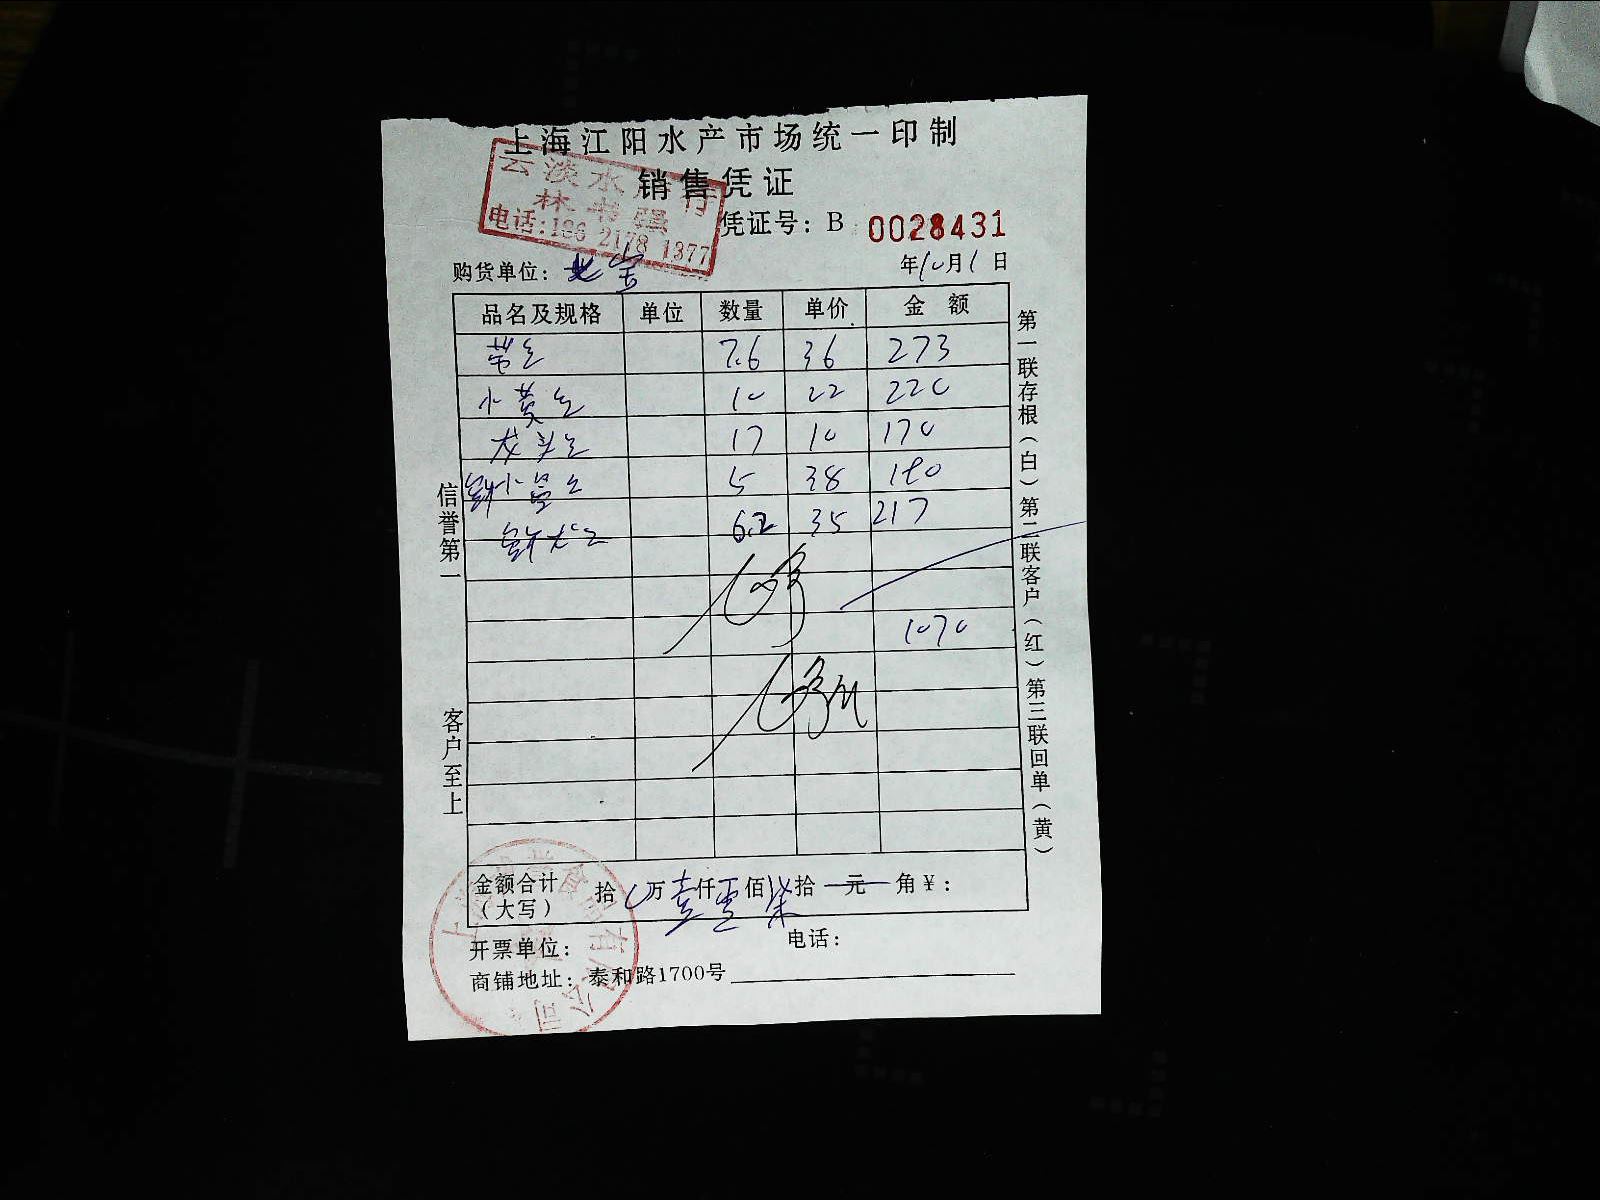 上海江阳水产市场统一印制
销售凭证
云淡水
林书强
电话:186 2178 1377
凭证号: B 0028431
购货单位: 北宝
年10月1日
品名及规格 单位 数量 单价 金额
7.6 36 273
小黄鱼 10 22 220
龙头鱼 17 10 170
鲜小黄鱼 5 38 180
6.2 35 217
1070
信誉第一
客户至上
第一联存根(白) 第二联客户(红) 第三联回单(黄)
金额合计
(大写)
拾 万壹仟零佰柒拾 元 角 ¥:
开票单位:
电话:
商铺地址: 泰和路1700号